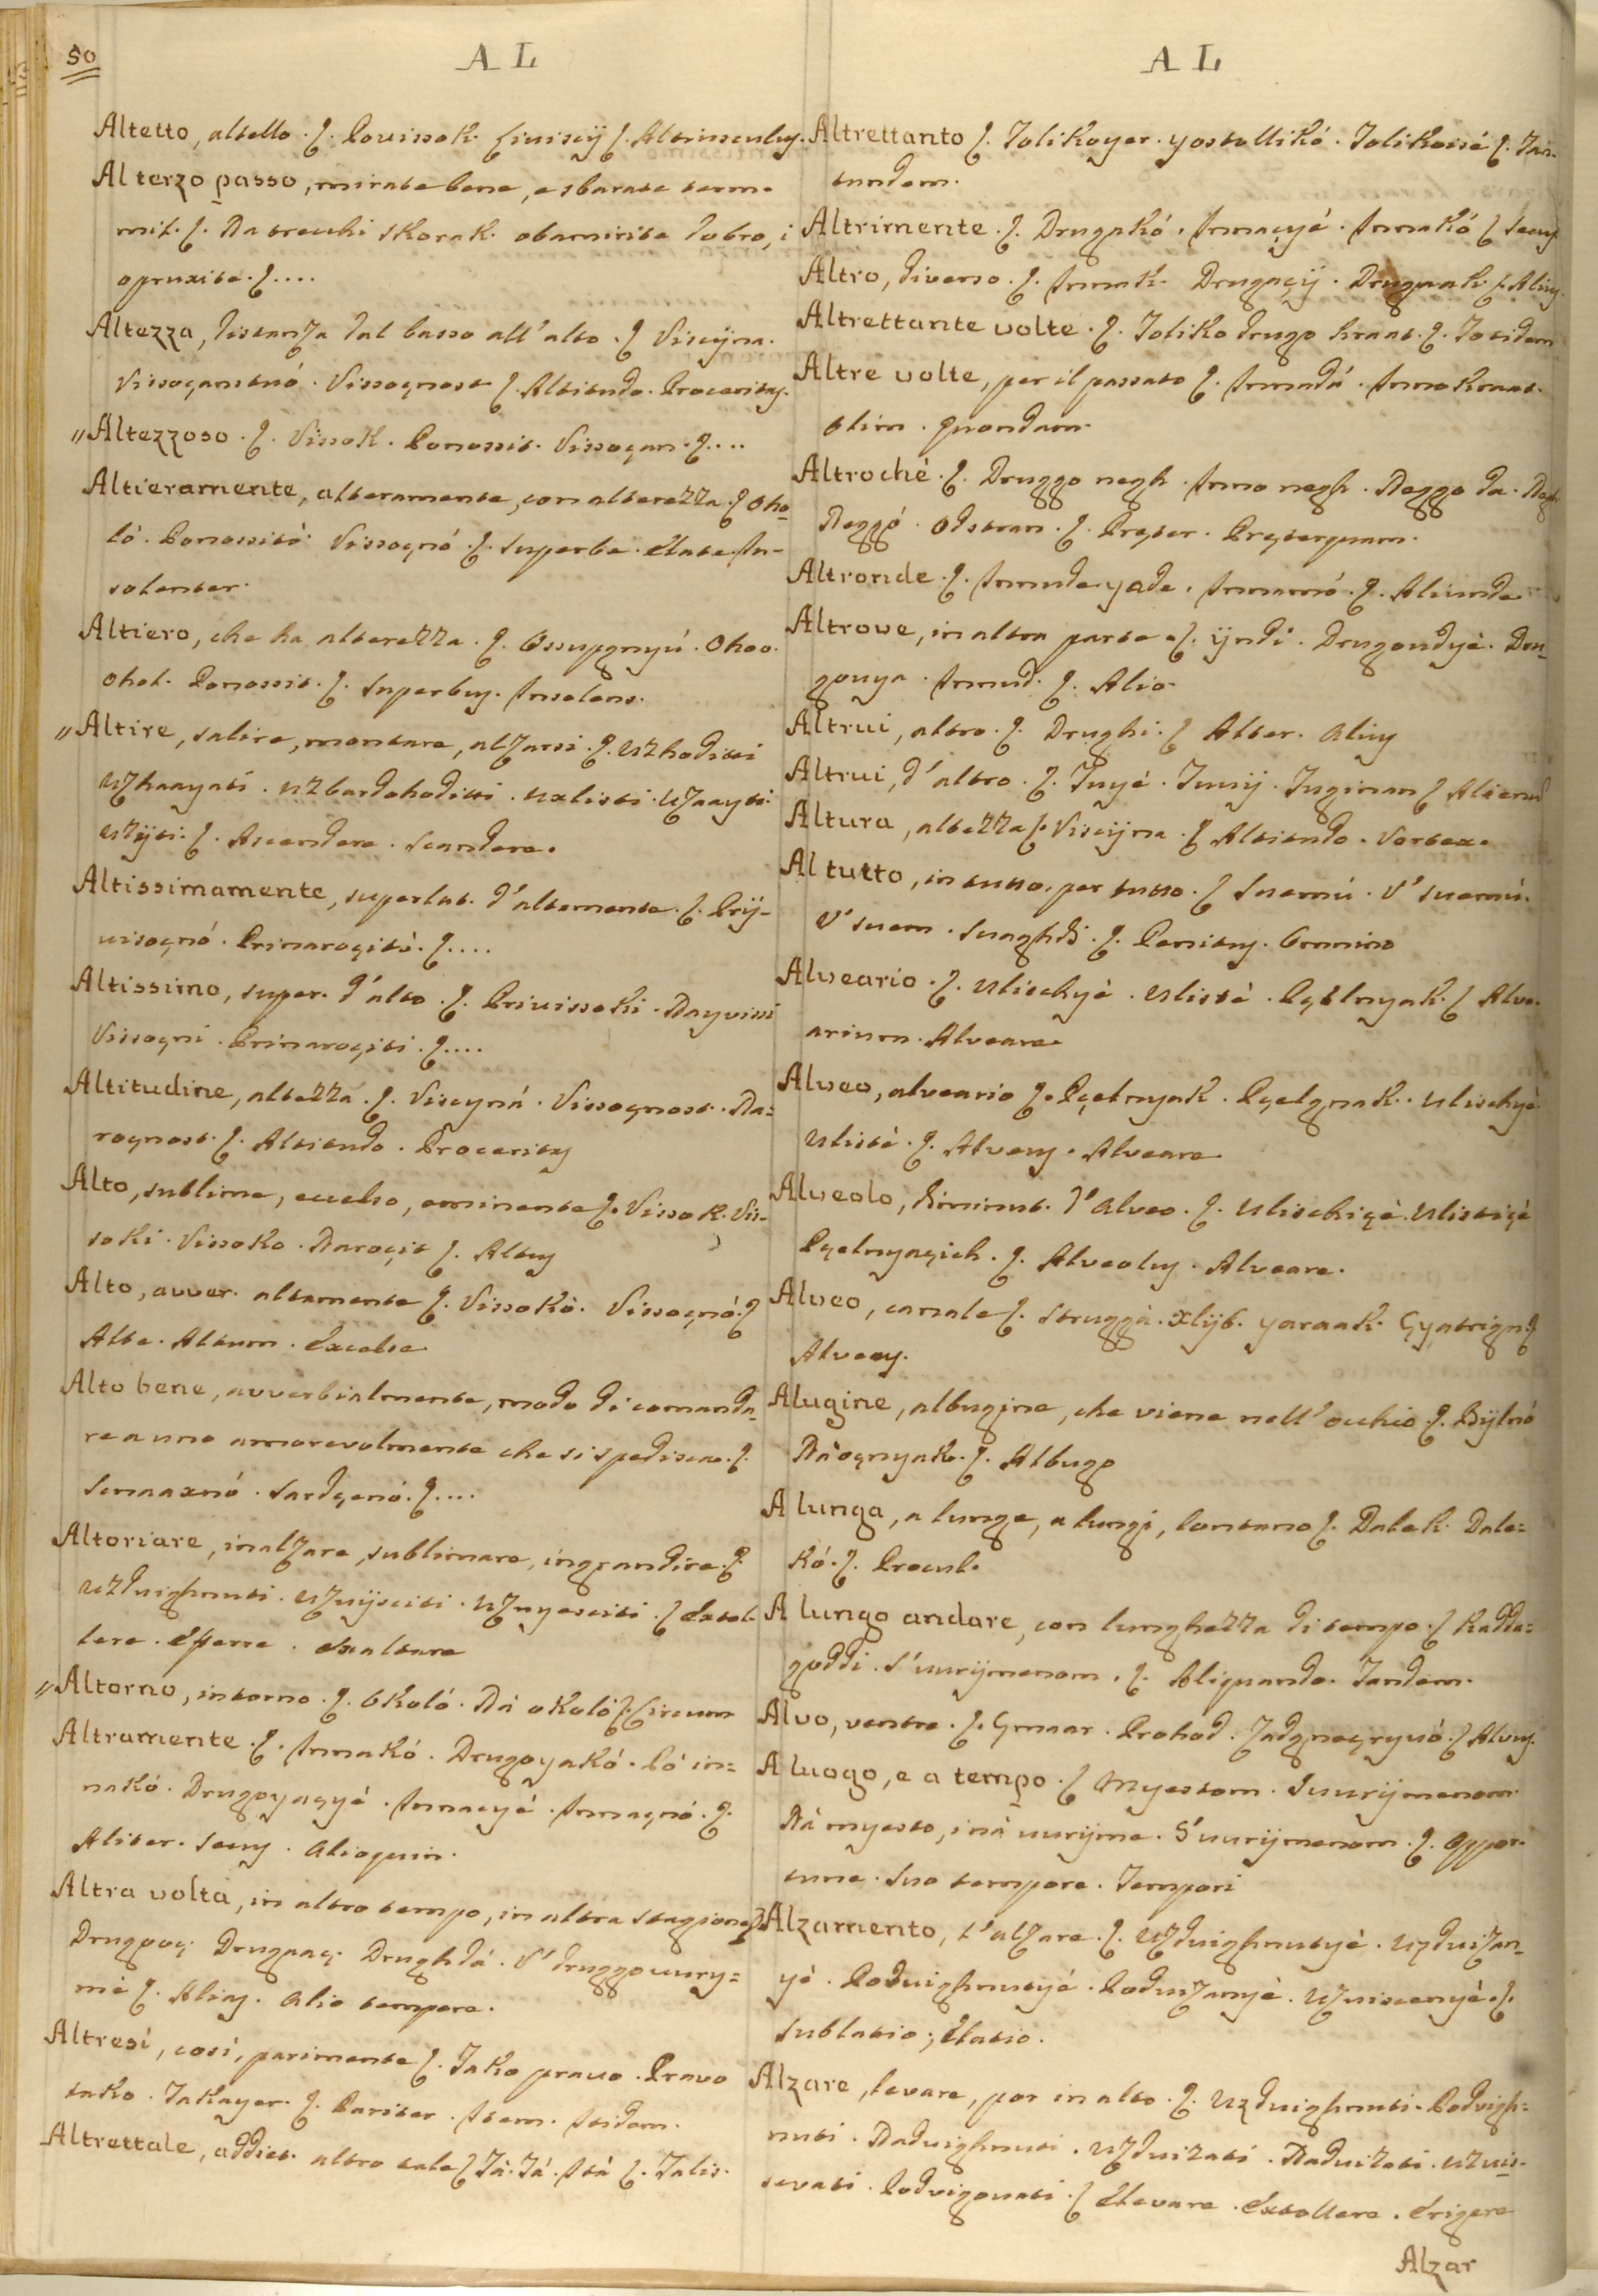 50
AL
Altetto, altello. ſ. Povissok. ſ. Altiusculus.
Al terzo passo, mirate bene, e sbarate term-
mit. ſ. Na trechi skorak. obamirite dobro, i
opruxite. ſ....
Altezza, distanza dal basso all'alto. ſ. Viscijna.
Vissoçanstuó. Vissoçnost ſ. Altitudo. Proceritas.
„Altezzoso. ſ. Vissok. Ponossit. Vissoçan. ſ....
Altieramente, alteramente, con alterezza. ſ. Oho-
ló. Ponossitó. Vissoçnó. ſ. Superbe. Elate. In-
solenter.
Altiero, che ha alterezza. ſ. Ossupgnyú. Ohoo.
ohol. Ponossit. ſ. Superbus. Insolens.
„Altire, salire, montare, alzarsi. ſ. Uzhoditti
Uzhaayati. uzbardohoditti. uxlisti. Uzaayti.
Uzijti. ſ. Ascendere. Scandere.
Altissimamente, superlat. d'altamente. ſ. Prij-
visoçnó. Prinaroçitó. ſ....
Altissimo, super. d'alto. ſ. Privissoki. Nayvissi
Vissoçni. Prinaroçiti. ſ....
Altitudine, altezza. ſ. Viscyná. Vissoçnost. Na=
roçnost. ſ. Altitudo. Proceritas
Alto, sublime, eccelso, eminente ſ. Vissok. Vis-
soki. Vissoko. Naroçit ſ. Altus
Alto, avver. altamente ſ. Vissokó. Vissoçnó. ſ
Alte. Altum. Excelse
Alto bene, avverbialmente, modo di comanda-
re a uno amorevolmente che si spedisca. ſ.
Snaaxnó. Sardçenó. ſ....
Altoriare, inalzare, sublimare, ingrandire. ſ.
Uzduighnuti. Uzuijsciti. Uznyesciti. ſ Extol-
lere. Eferre. Exaltare
„Altorno, intorno. ſ. Okoló. Ná okoló ſ. Circum
Altramente. ſ. Innakó. Drugoyakó. Pó in=
nakó. Drugoyaçyé. Innaçyé. Innaçnó. ſ.
Aliter. Secus. Alioquin.
Altra volta, in altro tempo, in altra stagione ſ
Drugooç. Drugaaç. Drughdá. V' druggo uury=
mé ſ. Alias. Alio tempore.
Altresí, cosí, parimente ſ. Tako pravo. Pravo
tako. Takayer. ſ. Pariter. Item. Itidem.
Altrettale, addiet. altro tale ſ Tà. Tá. Itá ſ. Talis.
AL
Altrettanto ſ. Tolikoyer. yostollikó. Tolikoisé ſ. Tan-
tundem.
Altrimente. ſ. Drugakó. Innaçyé. Innakó ſ Secus
Altro, diverso. ſ. Innak. Drugaçij. Drugaak. ſ. Alius.
Altrettante volte. ſ. Toliko drugo kraat. ſ. Totidem
Altre volte, per il passato ſ. Innadá. Inno kraat.
Olim. Quondam.
Altroché. ſ. Druggo negh. Inno negh. Neggo da. Negh.
Neggó. Odstran. ſ. Pręter. Pręterquam.
Altronde. ſ. Innude yade. Innamó. ſ. Aliunde
Altrove, in altra parte. ſ. ijndi. Drugoudyé. Dru-
gouya. Innud. ſ. Alio.
Altrui, altro. ſ. Drughi. ſ Alter. Alius
Altrui, d'altro. ſ. Tuyé. Tuuij. Tuginan ſ Alienus
Altura, altezza ſ. Viscijna. ſ Altitudo. Vertex.
Al tutto, in tutto, per tutto. ſ Suemú. U' suemú.
U' suem. Suaghdi. ſ. Penitus. Omnino
Alveario. ſ. Ulischyé. Ulisté. Pçelnyak. ſ Alve-
arium. Alveare.
Alveo, alveario ſ. Pçelnyak. Pçelgnak. Ulischyé
Ulisté. ſ. Alveus. Alveare
Alveolo, diminut. d'alveo. ſ. Ulischiçé. Ulistiçé
Pçelnyaçich. ſ. Alveolus. Alveare.
Alveo, canale ſ. Struggà. xlijb. yaraak. Çyatrign ſ
Alveus.
Alugine, albugine, che viene nell'occhio. ſ. Bijlnó
Náoçnyak. ſ. Albugo
A lunga, a lunge, a lungi, lontano ſ. Dalek. Dale=
kó. ſ. Procul.
A lungo andare, con lunghezza di tempo. ſ Kadda=
goddi. S'uurijmenom. ſ. Aliquando. Tandem.
Alvo, ventre. ſ. Gmaar. Prohod. Zadgnoçryvó. ſ Alvus.
A luogo, e a tempo. ſ Myestom. Suurijmenom.
Ná myesto, i ná uurijme. S'uurijmenom. ſ. Oppor-
tune. Suo tempore. Tempori
Alzamento, l'alzare. ſ. Uzduighnutyé. Uzduizan-
yé. Poduighnutyé. Poduizanyé. Uzuiscenyé. ſ.
Sublatio; Elatio.
Alzare, levare, por in alto. ſ. Uzduighnuti. Podvigh=
nuti. Naduighnuti. Uzduizati. Naduizati. Uzuis-
sevati. Podvigouati. ſ Elevare. Extollere. Erigere
Alzar